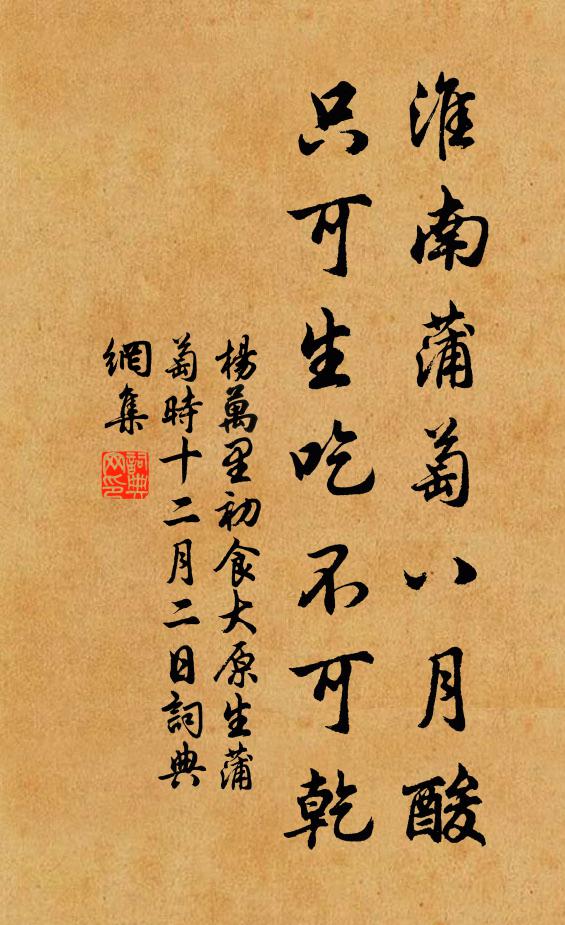 淮南蒲萄八月酸
只可生吃不可乾
楊萬里初食大原生蒲
萄時十二月二日詞典
網集
詞典網印